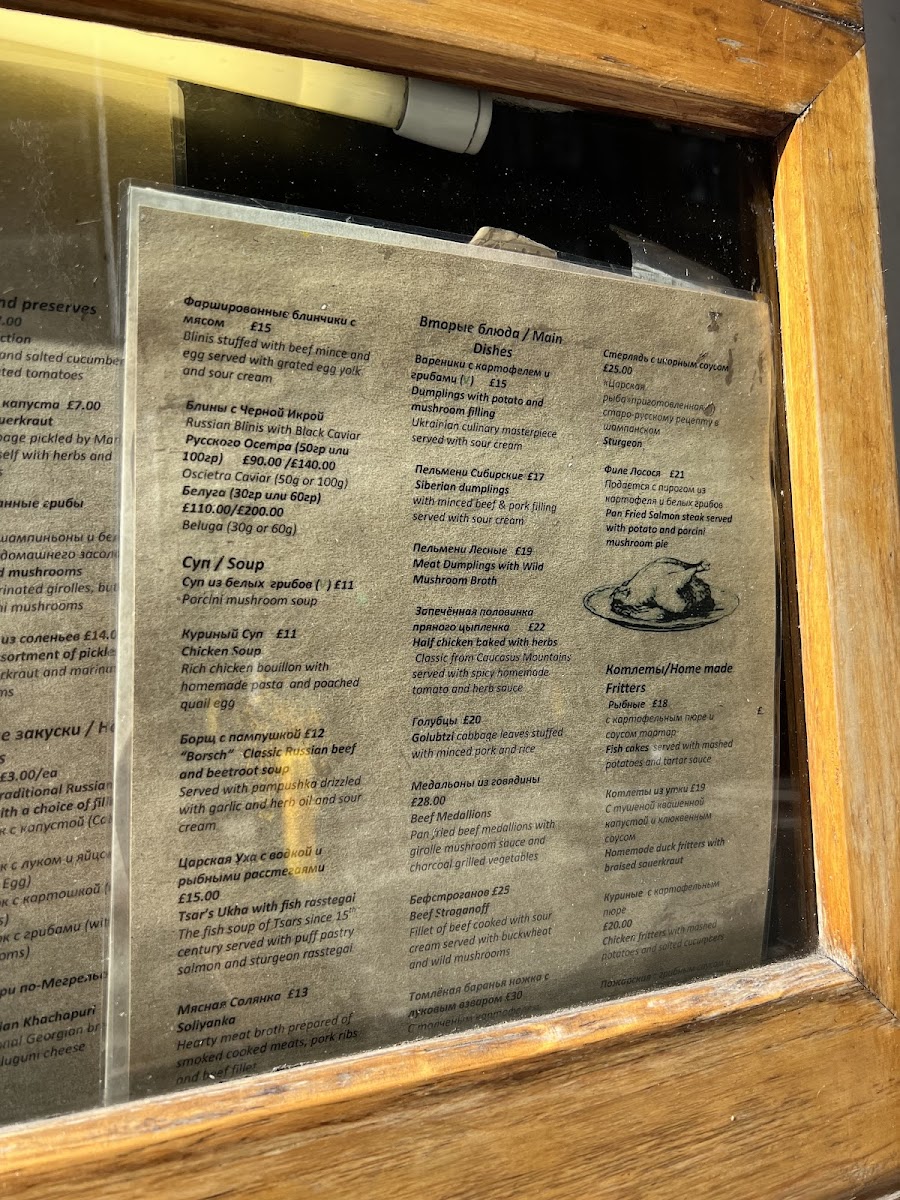 nd preserves
and salted cucumbe
ted tomatoes
капуста £7.00
uerkraut
age pickled by Mar
self with herbs and
нные грибы
шампиньоны и бе
домашнего засол
d mushrooms
rinated girolles, but
ni mushrooms
из соленьев £14.0
sortment of pickle
rkraut and marina
ms
е закуски / Н
£3.00/ea
raditional Russian
ith a choice of fil
к с капустой (Ca
к с луком и яйцо
Egg)
к с картошкой (
к с грибами (wit
oms)
ри по-Мегрелы
ian Khachapuri
onal Georgian br
luguni cheese
Фаршированные блинчики с
мясом £15
Blinis stuffed with beef mince and
egg served with grated egg yolk
and sour cream
Блины с Черной Икрой
Russian Blinis with Black Caviar
Русского Осетра (50гр или
100гр) £90.00 /£140.00
Oscietra Caviar (50g or 100g)
Белуга (30гр или 60гр)
£110.00/£200.00
Beluga (30g or 60g)
Суп / Soup
Суп из белых грибов (V) £11
Porcini mushroom soup
Куриный Суп £11
Chicken Soup
Rich chicken bouillon with
homemade pasta and poached
quail egg
Борщ с пампушкой £12
“Borsch” Classic Russian beef
and beetroot soup
Served with pampushka drizzled
with garlic and herb oil and sour
cream
Царская Уха с водкой и
рыбными расстегаями
£15.00
Tsar’s Ukha with fish rasstegai
The fish soup of Tsars since 15th
century served with puff pastry
salmon and sturgeon rasstegai
Мясная Солянка £13
Soliyanka
Hearty meat broth prepared of
smoked cooked meats, pork ribs
and beef fillet
Вторые блюда / Main
Dishes
Вареники с картофелем и
грибами (V) £15
Dumplings with potato and
mushroom filling
Ukrainian culinary masterpiece
served with sour cream
Пельмени Сибирские £17
Siberian dumplings
with minced beef & pork filling
served with sour cream
Пельмени Лесные £19
Meat Dumplings with Wild
Mushroom Broth
Запечённая половинка
пряного цыпленка £22
Half chicken baked with herbs
Classic from Caucasus Mountains
served with spicy homemade
tomato and herb sauce
Голубцы £20
Golubtzi cabbage leaves stuffed
with minced pork and rice
Медальоны из говядины
£28.00
Beef Medallions
Pan fried beef medallions with
girolle mushroom sauce and
charcoal grilled vegetables
Бефстроганов £25
Beef Stroganoff
Fillet of beef cooked with sour
cream served with buckwheat
and wild mushrooms
Томлёная баранья ножка с
луковым взваром £30
С толченым картофелем
Стерлядь с икорным соусом
£25.00
«Царская
рыба»приготовленная
старо-русскому рецепту в
шампанском
Sturgeon
Филе Лосося £21
Подается с пирогом из
картофеля и белых грибов
Pan Fried Salmon steak served
with potato and porcini
mushroom pie
Котлеты/Home made
Fritters
Рыбные £18
с картофельным пюре и
соусом тартар
£
Fish cakes served with mashed
potatoes and tartar sauce
Котлеты из утки £19
С тушеной квашенной
капустой и клюквенным
соусом
Homemade duck fritters with
braised sauerkraut
Куриные с картофельным
пюре
£20.00
Chicken fritters with mashed
potatoes and salted cucumbers
Пожарская с грибным соусом